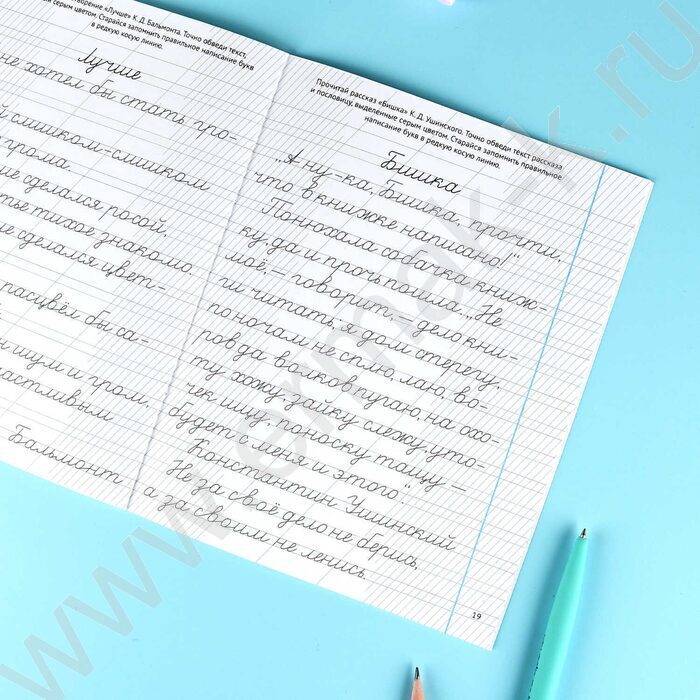 творение «Лучше» К. Д. Бальмонта. Точно обведи текст,
серым цветом. Старайся запомнить правильное написание букв
в редкую косую линию.
Лучше
не хотел бы стать гро-
слишком-слишком
грома.
сделался росой,
тихое знакомо.
сделался цвет-
расцвёл бы са-
шум и гром,
Бальмонт
Прочитай рассказ «Бишка» К. Д. Ушинского. Точно обведи текст рассказа
и пословицу, выделенные серым цветом. Старайся запомнить правильное
написание букв в редкую косую линию.
Бишка
„А ну-ка, Бишка, прочти,
что в книжке написано!“
Понюхала собачка книж-
ку, да и прочь пошла. „Не
моё, – говорит, – дело кни-
ги читать; я дом стерегу,
по ночам не сплю, лаю, во-
ров да волков пугаю, на охо-
ту хожу, зайку слежу, уто-
чек ищу, поноску тащу –
будет с меня и этого“.
Константин Ушинский
Не за своё дело не берись,
а за своим не ленись.
19
www.ermak-k.ru